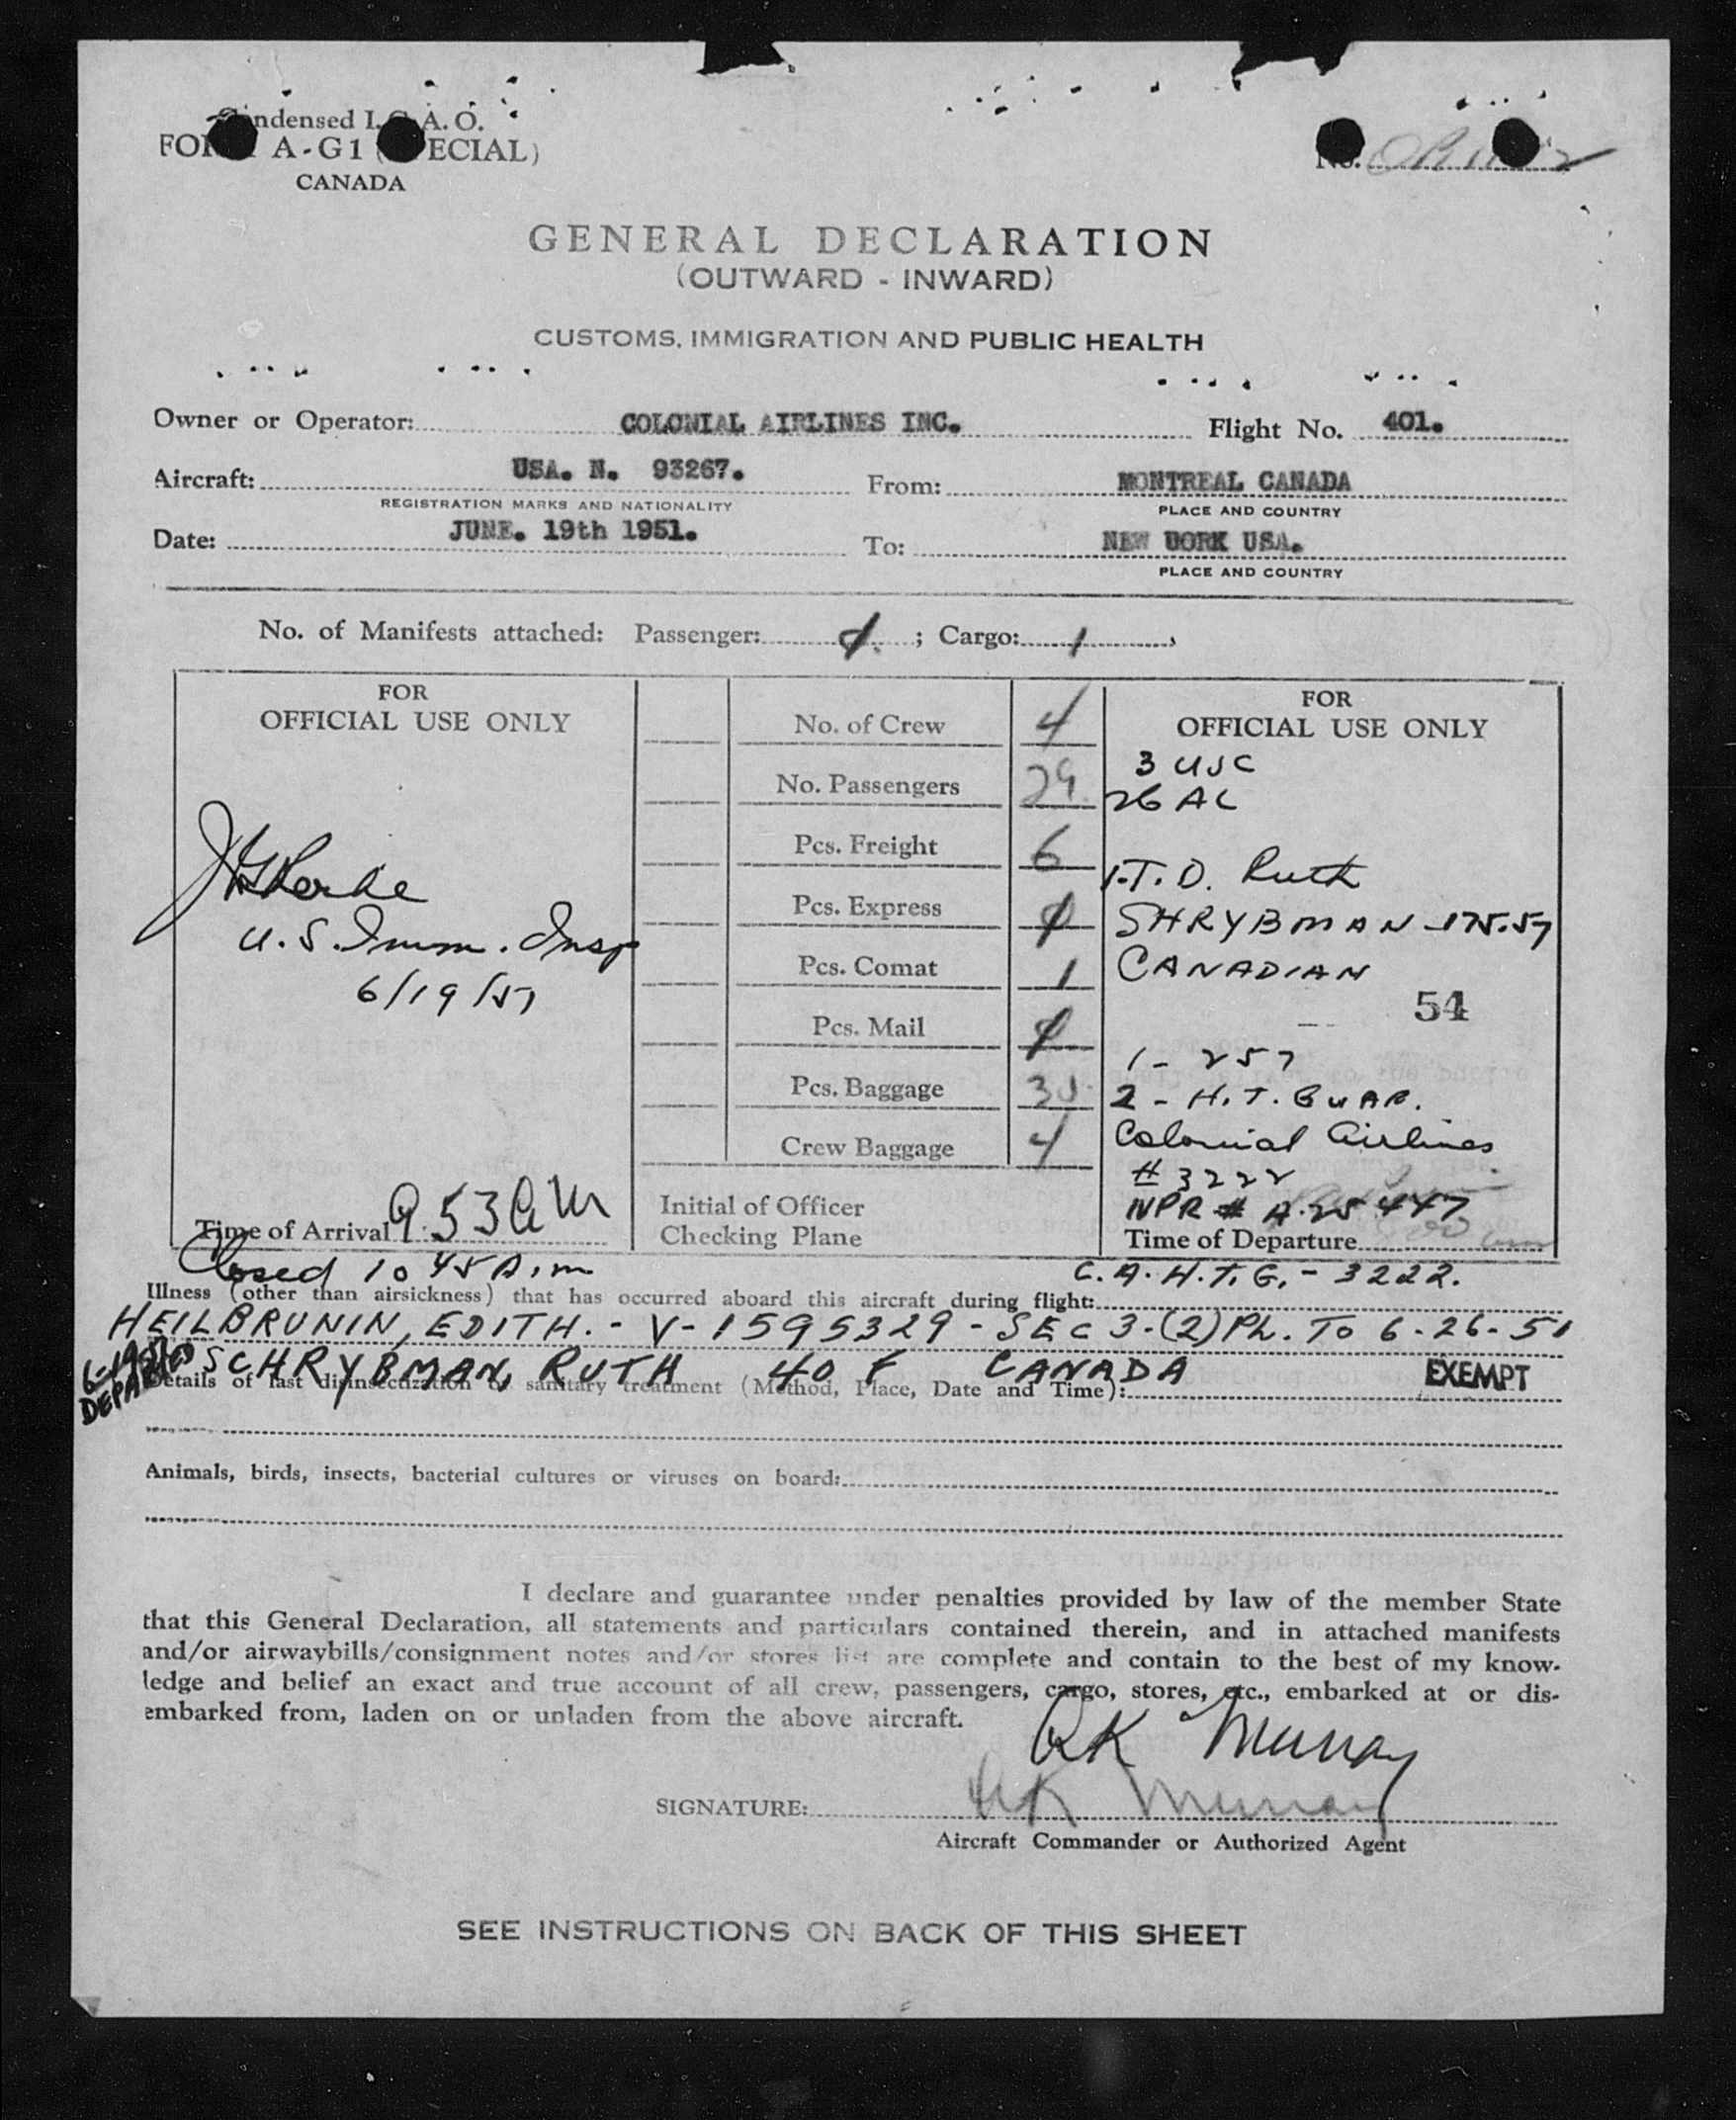 Condensed I.C.A.O.
FORM A-G1 (SPECIAL)
CANADA
No.
GENERAL DECLARATION
(OUTWARD - INWARD)
CUSTOMS, IMMIGRATION AND PUBLIC HEALTH
Owner or Operator: COLONIAL AIRLINES INC. Flight No. 401.
Aircraft: USA. N. 93267. From: MONTREAL CANADA
REGISTRATION MARKS AND NATIONALITY PLACE AND COUNTRY
Date: JUNE. 19th 1951. To: NEW UORK USA.
PLACE AND COUNTRY
No. of Manifests attached: Passenger: ; Cargo: 1
FOR
OFFICIAL USE ONLY
U.S. Imm. Insp
6/19/51
Time of Arrival 9:53 AM
Closed 10 45 A.m
No. of Crew 4
No. Passengers 29
Pcs. Freight 6
Pcs. Express
Pcs. Comat 1
Pcs. Mail
Pcs. Baggage
Crew Baggage 4
Initial of Officer
Checking Plane
FOR
OFFICIAL USE ONLY
3 USC
26 AL
1-T.D. Ruth
SHRYBMAN -175.57
CANADIAN
54
1 - 257
2 - H.T. GUAR.
Colonial Airlines
# 3222
NPR # A-25447
Time of Departure
C.A.H.T.G. - 3222.
Illness (other than airsickness) that has occurred aboard this aircraft during flight:
HEILBRUNIN, EDITH. - V-1595329 - SEC 3-(2) PL. TO 6-26-51
6-19-51
DEPARTED
SCHRYBMAN, RUTH 40 F CANADA
EXEMPT
Details of last disinsectization or sanitary treatment (Method, Place, Date and Time):
Animals, birds, insects, bacterial cultures or viruses on board:
I declare and guarantee under penalties provided by law of the member State
that this General Declaration, all statements and particulars contained therein, and in attached manifests
and/or airwaybills/consignment notes and/or stores list are complete and contain to the best of my know-
ledge and belief an exact and true account of all crew, passengers, cargo, stores, etc., embarked at or dis-
embarked from, laden on or unladen from the above aircraft.
RK Murray
SIGNATURE: RK Murray
Aircraft Commander or Authorized Agent
SEE INSTRUCTIONS ON BACK OF THIS SHEET